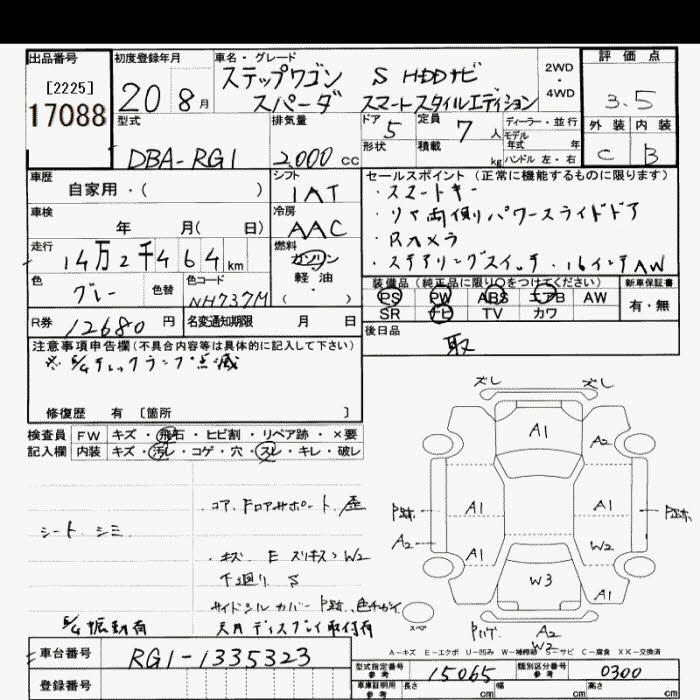 出品番号
[2225]
17088
初度登録年月
20 8月
車名・グレード
ステップワゴン S HDDナビ
スパーダ スマートスタイルエディション
2WD
・
4WD
評価点
3.5
外装 内装
C B
型式
DBA-RG1
排気量
2,000 cc
ドア 5
形状
定員 7 人
積載 kg
ディーラー・並行
モデル
年式 年
ハンドル 左・右
車歴
自家用・( )
シフト
IAT
車検
年 月( 日)
冷房
AAC
走行
14万2千464 km
燃料
ガソリン
軽油
・
( )
色
グレー
色替
色コード
NH737M
R券 12680 円
名変通知期限 月 日
セールスポイント (正常に機能するものに限ります)
・スマートキー
・リア両側パワースライドドア
・Rカメラ
・ステアリングスイッチ・16インチAW
装備品 (純正品に限り○をつけてください)
PS PW ABS エアB AW
SR ナビ TV カワ
新車保証書
有・無
後日品
取
注意事項申告欄(不具合内容等は具体的に記入して下さい)
※E/Gチェックランプ点滅
修復歴 有 [箇所 ]
検査員 FW キズ・飛石・ヒビ割・リペア跡・×要
記入欄 内装 キズ・汚レ・コゲ・穴・スレ・キレ・破レ
・コア、Fロアサポート歪
シート シミ
・キズ E スリキズ W2
下廻り S
サイドシルカバー P跡、色チガイ
E/G振動有
天井ディスプレイ取付有
ズレ ズレ
A1 A2
P跡 A1 A1 P跡
A2 A1 W2
W3 A1
スペア
A2
W2
A-キズ E-エクボ U-凹み W-補修跡 S-サビ C-腐食 XX-交換済
車台番号 RG1-1335323
登録番号
型式指定番号
参考
15065
類別区分番号
参考
0300
車庫証明用
参考
長さ cm 幅 cm 高さ cm